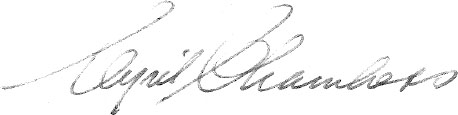 Cyril Chambers